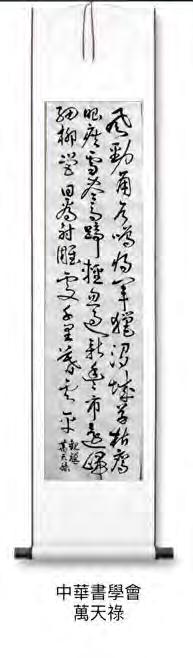 風勁角弓鳴將軍獵渭城草枯鷹
眼疾雪盡馬蹄輕忽過新豐市還歸
細柳營回看射雕處千里暮雲平
觀獵
萬天祿
中華書學會
萬天祿